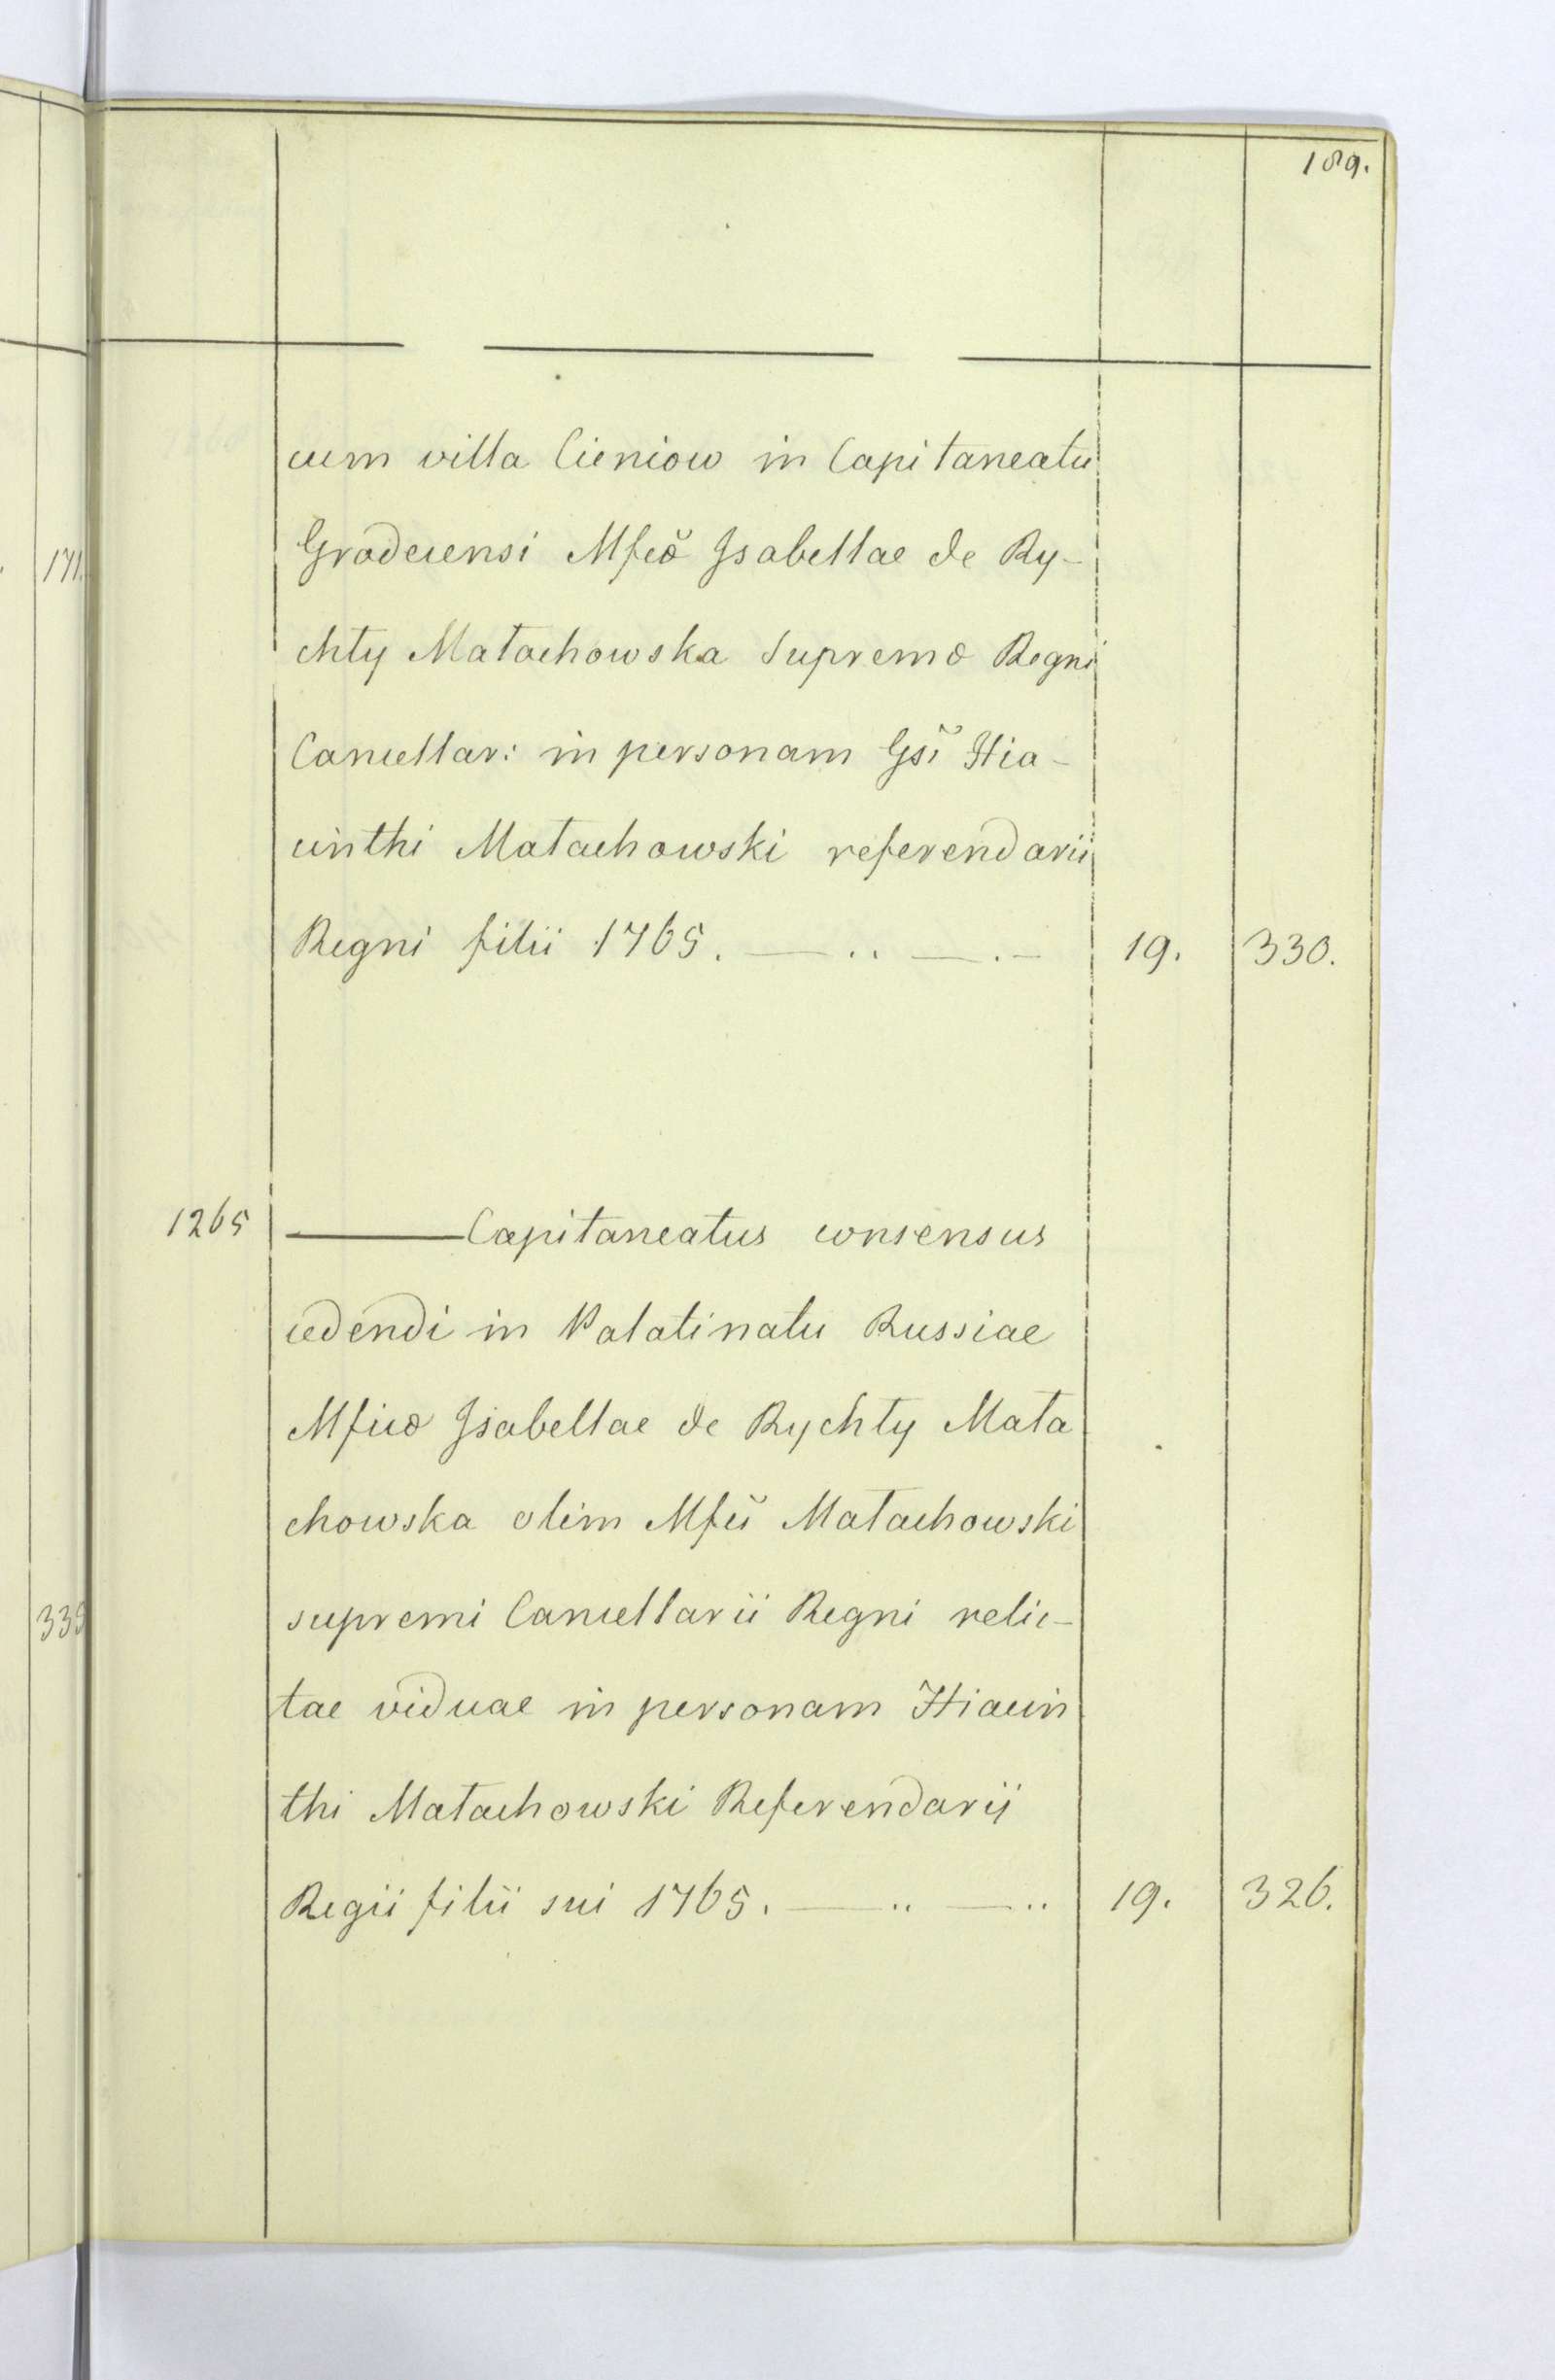 189.
cum villa Cieniow in Capitaneatu
Grodecensi Mfcō Isabellae de Ry-
chty Małachowska Supremo Regni
Cancellar: in personam Gsi Hia-
cinthi Małachowski referendarii
Regni filii 1765. 19. 330.
1265 Capitaneatus consensus
cedendi in Palatinatu Russiae
Mfico Isabellae de Rychty Mała
chowska olim Mfci Małachowski
supremi Cancellarii Regni relic-
tae viduae in personam Hiacin
thi Małachowski Referendarij
Regii filii sui 1765. 19. 326.
171.